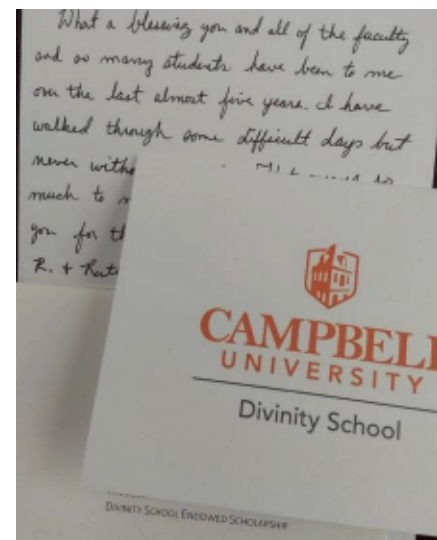 What a blessing you and all of the faculty
and so many students have been to me
over the last almost five years. I have
walked through some difficult days but
never
much to
you for
R. +
CAMPBELL
UNIVERSITY
Divinity School
DIVINITY SCHOOL ENDOWED SCHOLARSHIP